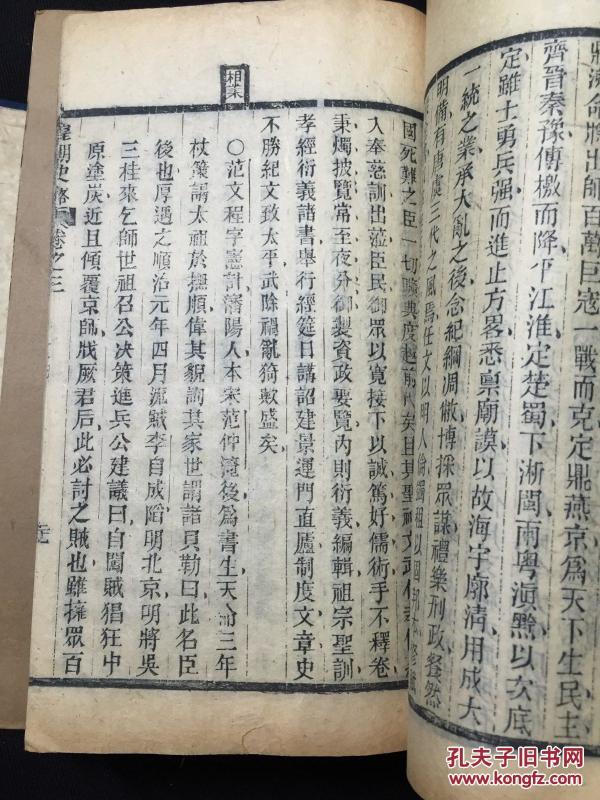 將海命將出師百萬巨寇一戰而克定鼎燕京爲天下生民主
齊晉秦豫傳檄而降平江淮定楚蜀下浙閩兩粵滇黔以次底
定雖士勇兵强而進止方畧悉禀廟謨以故海宇廓清用成大
一統之業承大亂之後念紀綱凋敝博採眾謀禮樂刑政餐然
明備有唐虞三代之風焉任文以明人倫
國死難之臣一切曠典度越前代矣且其聖神文武
入奉慈訓出蒞臣民御眾以寬接下以誠篤好儒術手不釋卷
秉燭披覽常至夜分御製資政要覽內則衍義編輯祖宗聖訓
孝經衍義諸書舉行經筵日講詔建景運門直廬制度文章史
不勝紀文致太平武除禍亂猗歟盛矣
相業
○范文程字憲計瀋陽人本宋范仲淹後爲書生天命三年
杖策謁太祖於撫順偉其貌詢其家世謂諸貝勒曰此名臣
後也厚遇之順治元年四月流賊李自成陷明北京明將吳
三桂來乞師世祖召公决策進兵公建議曰自闖賊猖狂中
原塗炭近且傾覆京師戕厥君后此必討之賊也雖擁眾百
皇朝史略 卷之三
孔夫子旧书网
www.kongfz.com